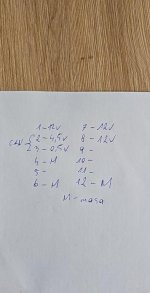 1 - 12v 7 - 12v
CAN { 2 - 4,5v 8 - 12v
3 - 0,5v 9 -
4 - M 10 -
5 - 11 -
6 - M 12 - M
M - masa